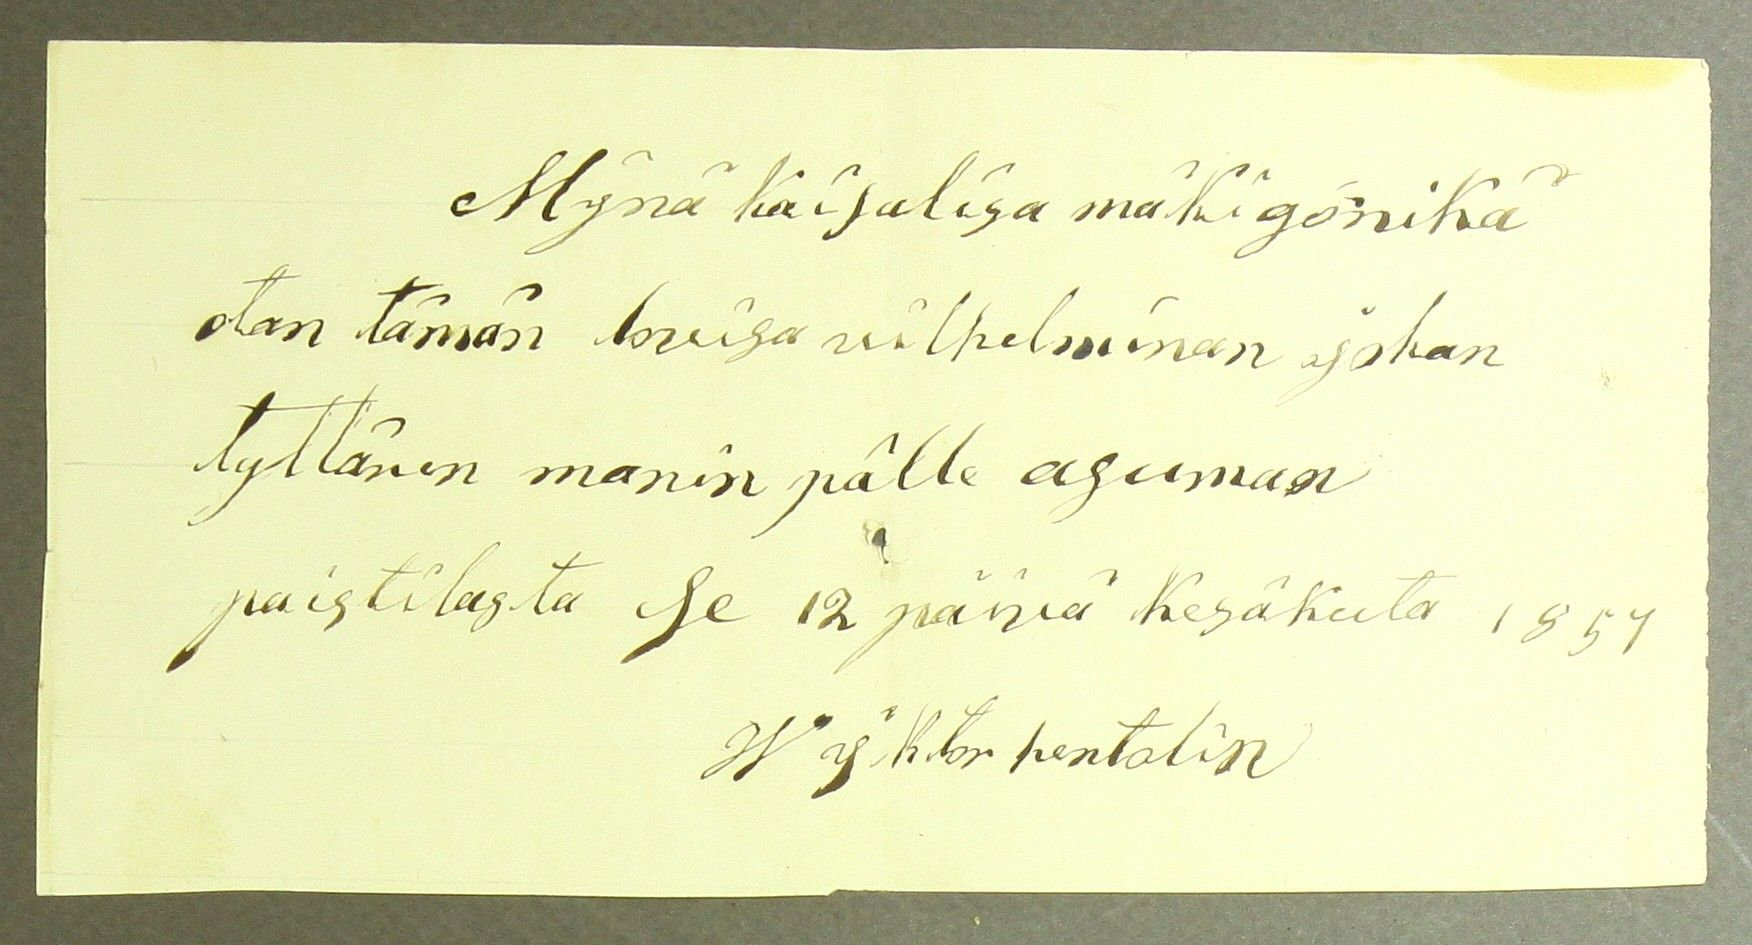 Mÿnä kaisalisa mäkigönikä
otan tämän lowisa vilhelminan johan
tyttären manin pälle asuman
paistilasta se 12 päivä kesäkuta 1857
Wÿktor pentolin